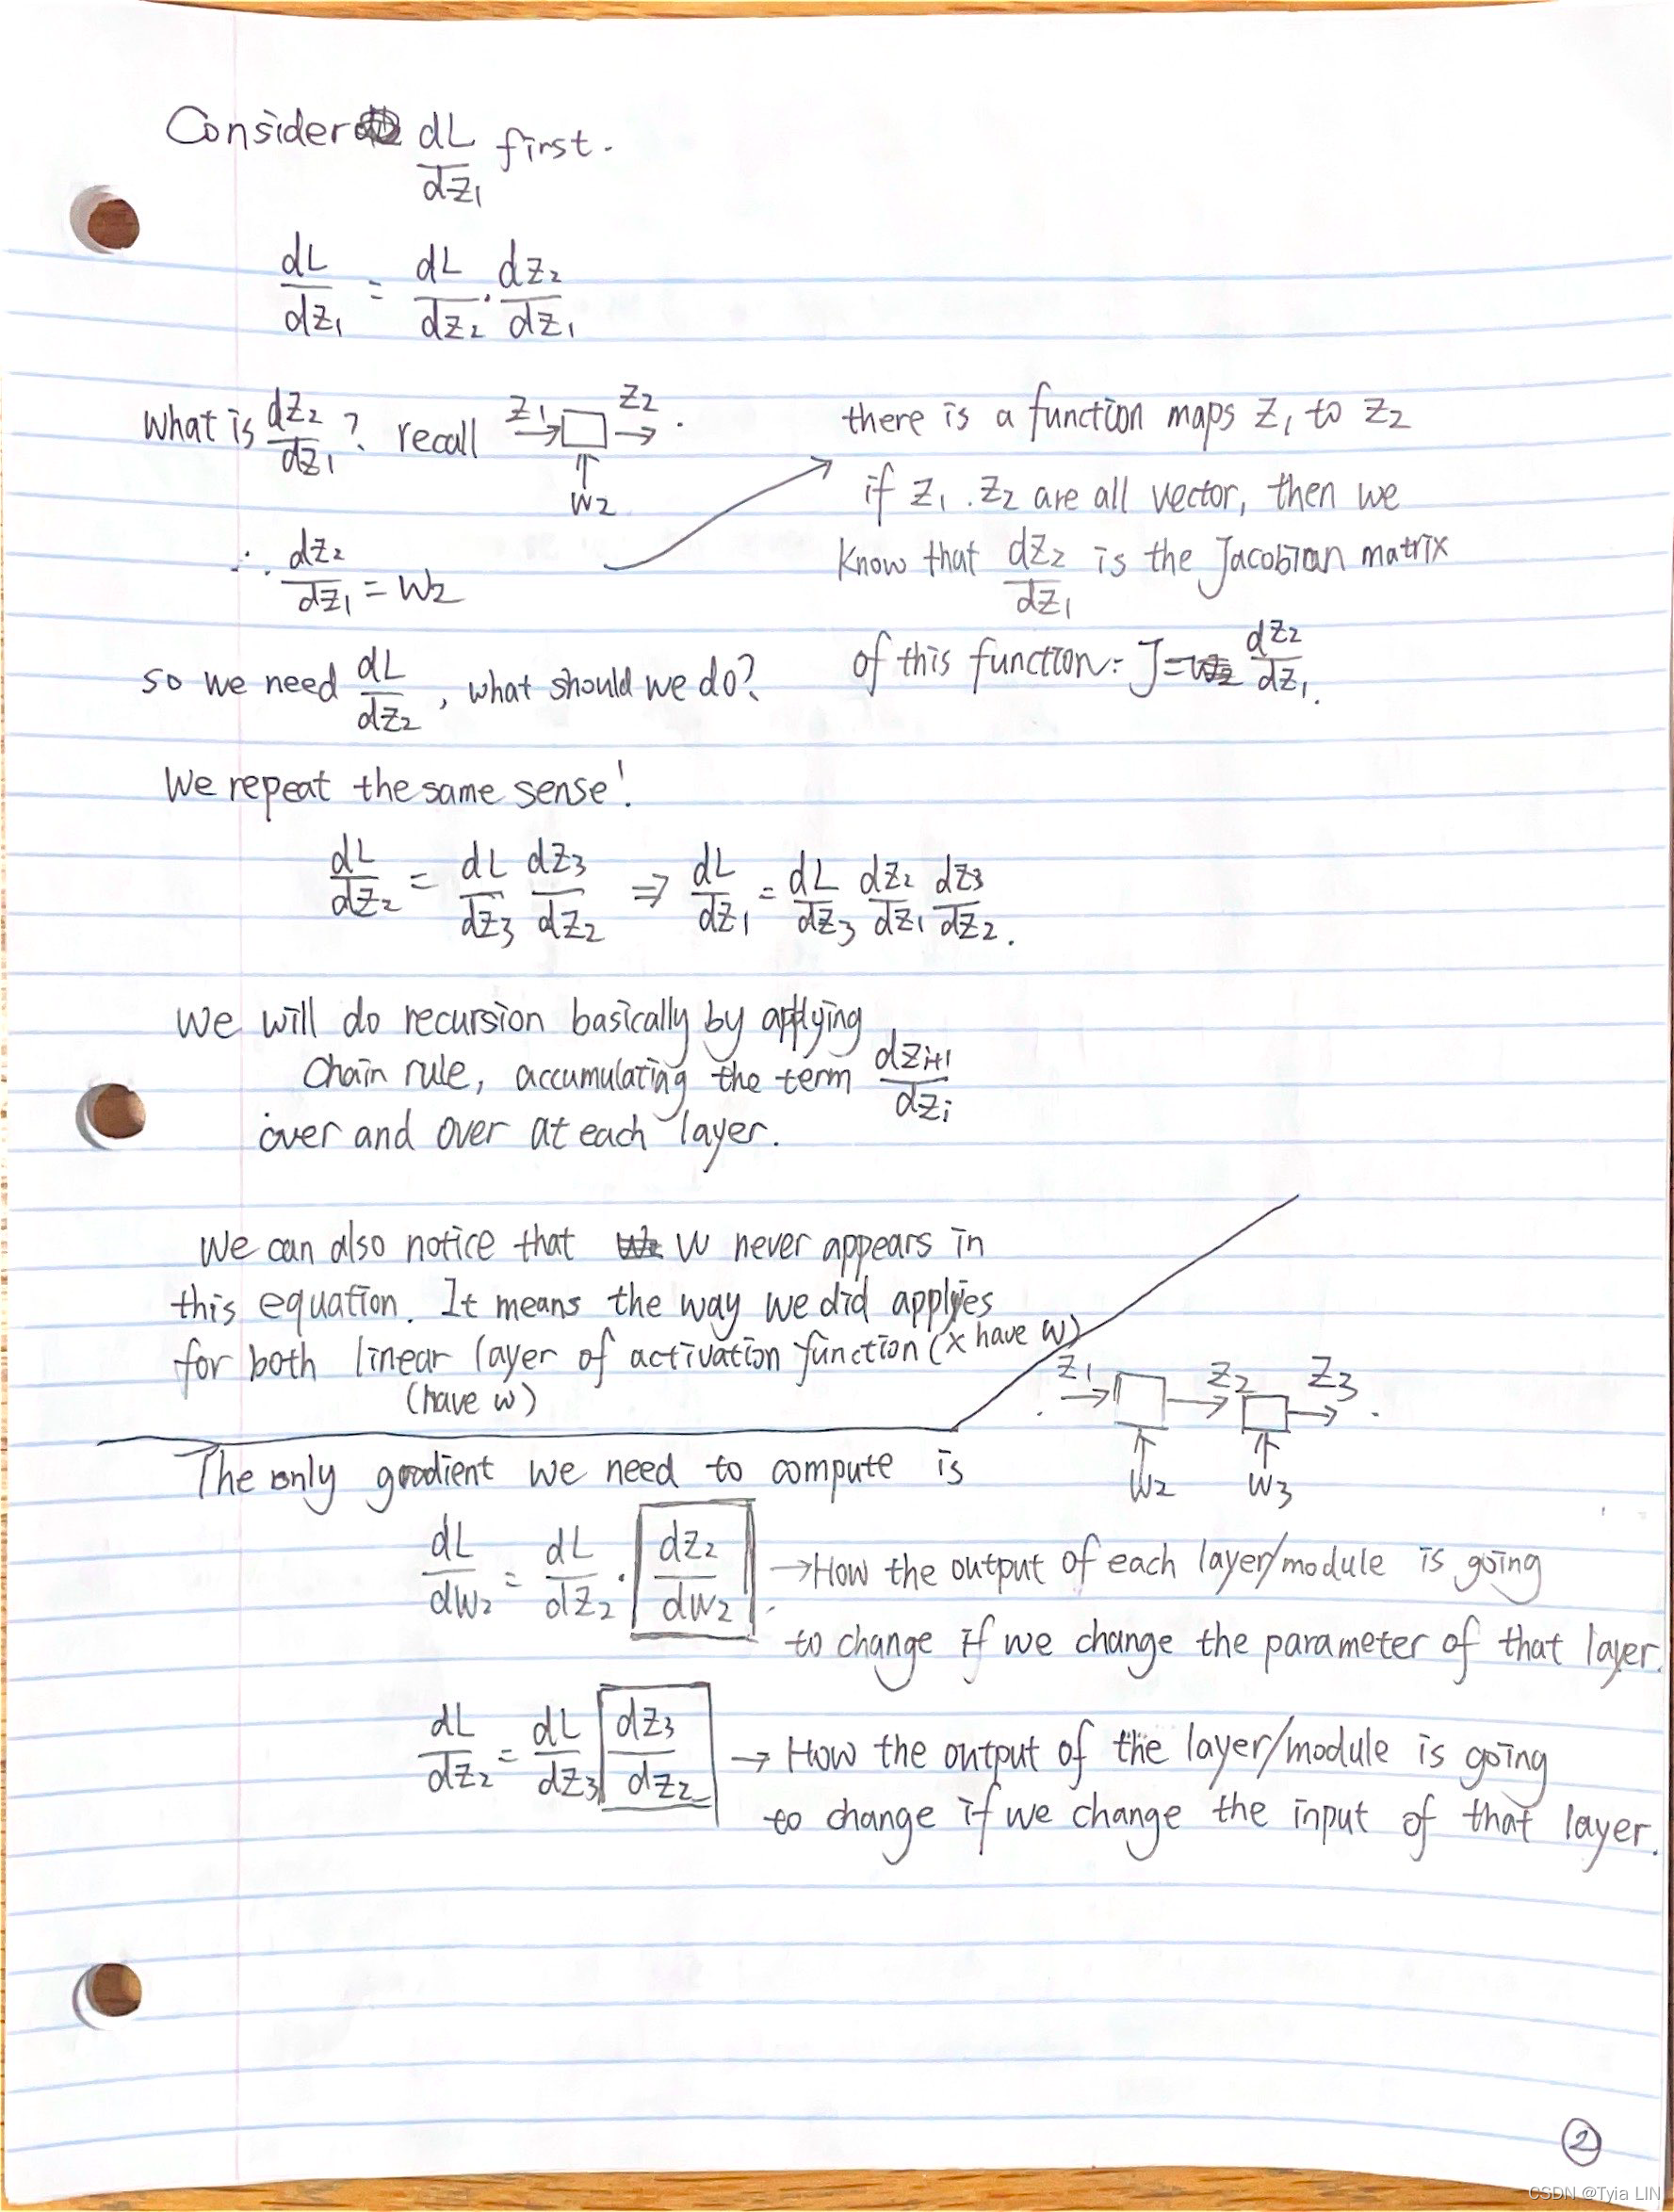 Consider dL/dz₁ first.
dL/dz₁ = dL/dz₂ · dz₂/dz₁
What is dz₂/dz₁? recall z₁ → □ → z₂.
↑
W₂
∴ dz₂/dz₁ = W₂
there is a function maps z₁ to z₂
if z₁ . z₂ are all vector, then we
know that dz₂/dz₁ is the Jacobian matrix
of this function: J = dz₂/dz₁.
so we need dL/dz₂, what should we do?
We repeat the same sense!
dL/dz₂ = dL/dz₃ dz₃/dz₂ ⇒ dL/dz₁ = dL/dz₃ dz₂/dz₁ dz₃/dz₂.
We will do recursion basically by applying
Chain rule, accumulating the term dzᵢ₊₁/dzᵢ
over and over at each layer.
We can also notice that W never appears in
this equation. It means the way we did applyies
for both linear layer of activation function (x have w)
(have w)
z₁ → □ → z₂ □ → z₃.
↑ ↑
W₂ W₃
The only gradient we need to compute is
dL/dw₂ = dL/dz₂ · dz₂/dw₂ → How the output of each layer/module is going
to change if we change the parameter of that layer.
dL/dz₂ = dL/dz₃ dz₃/dz₂ → How the output of the layer/module is going
to change if we change the input of that layer.
②
CSDN @Tyia LIN